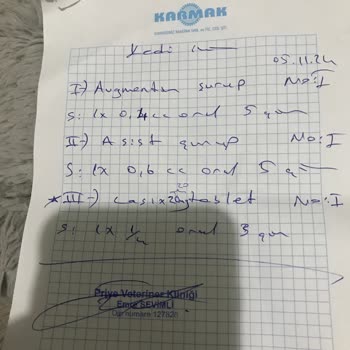 KARMAK
05.11.24
I-) Augmentin surup No:I
S: 1x 0,4 cc oral 5 gün
II-) Asist surup No:I
S: 1x 0,6 cc oral 5 gün
III-) Lasix tablet No:I
S: 1x 1/4 oral 3 gün
Veteriner Kliniği
Emre SEVİMLİ